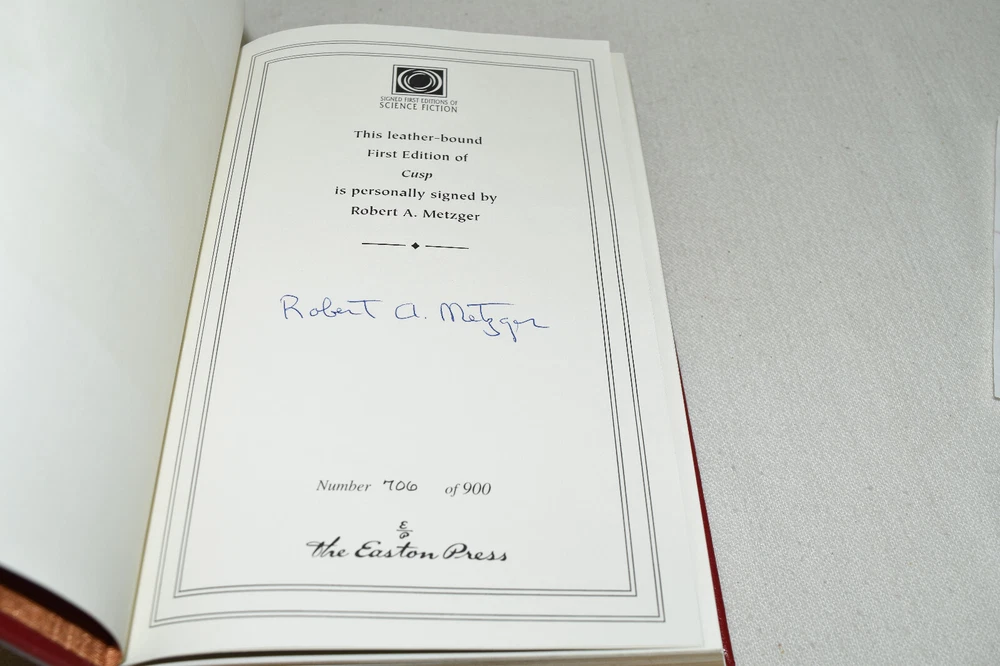 SIGNED FIRST EDITIONS OF
SCIENCE FICTION
This leather-bound
First Edition of
Cusp
is personally signed by
Robert A. Metzger
Robert A. Metzger
Number 706 of 900
E
P
the Easton Press